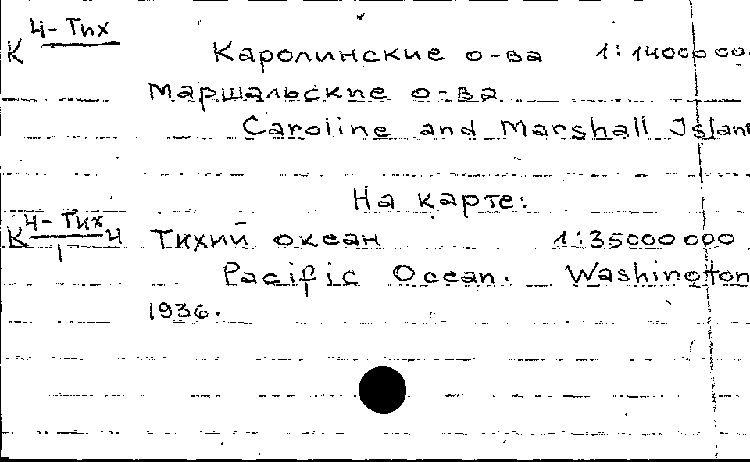 К 4-Тих
Каролинские о-ва 1:14000000
Маршальские о-ва
Caroline and Marshall Islan
На карте:
К 4-Тих/1 4 Тихий океан 1:35000000
Pacific Ocean. Washington
1936.